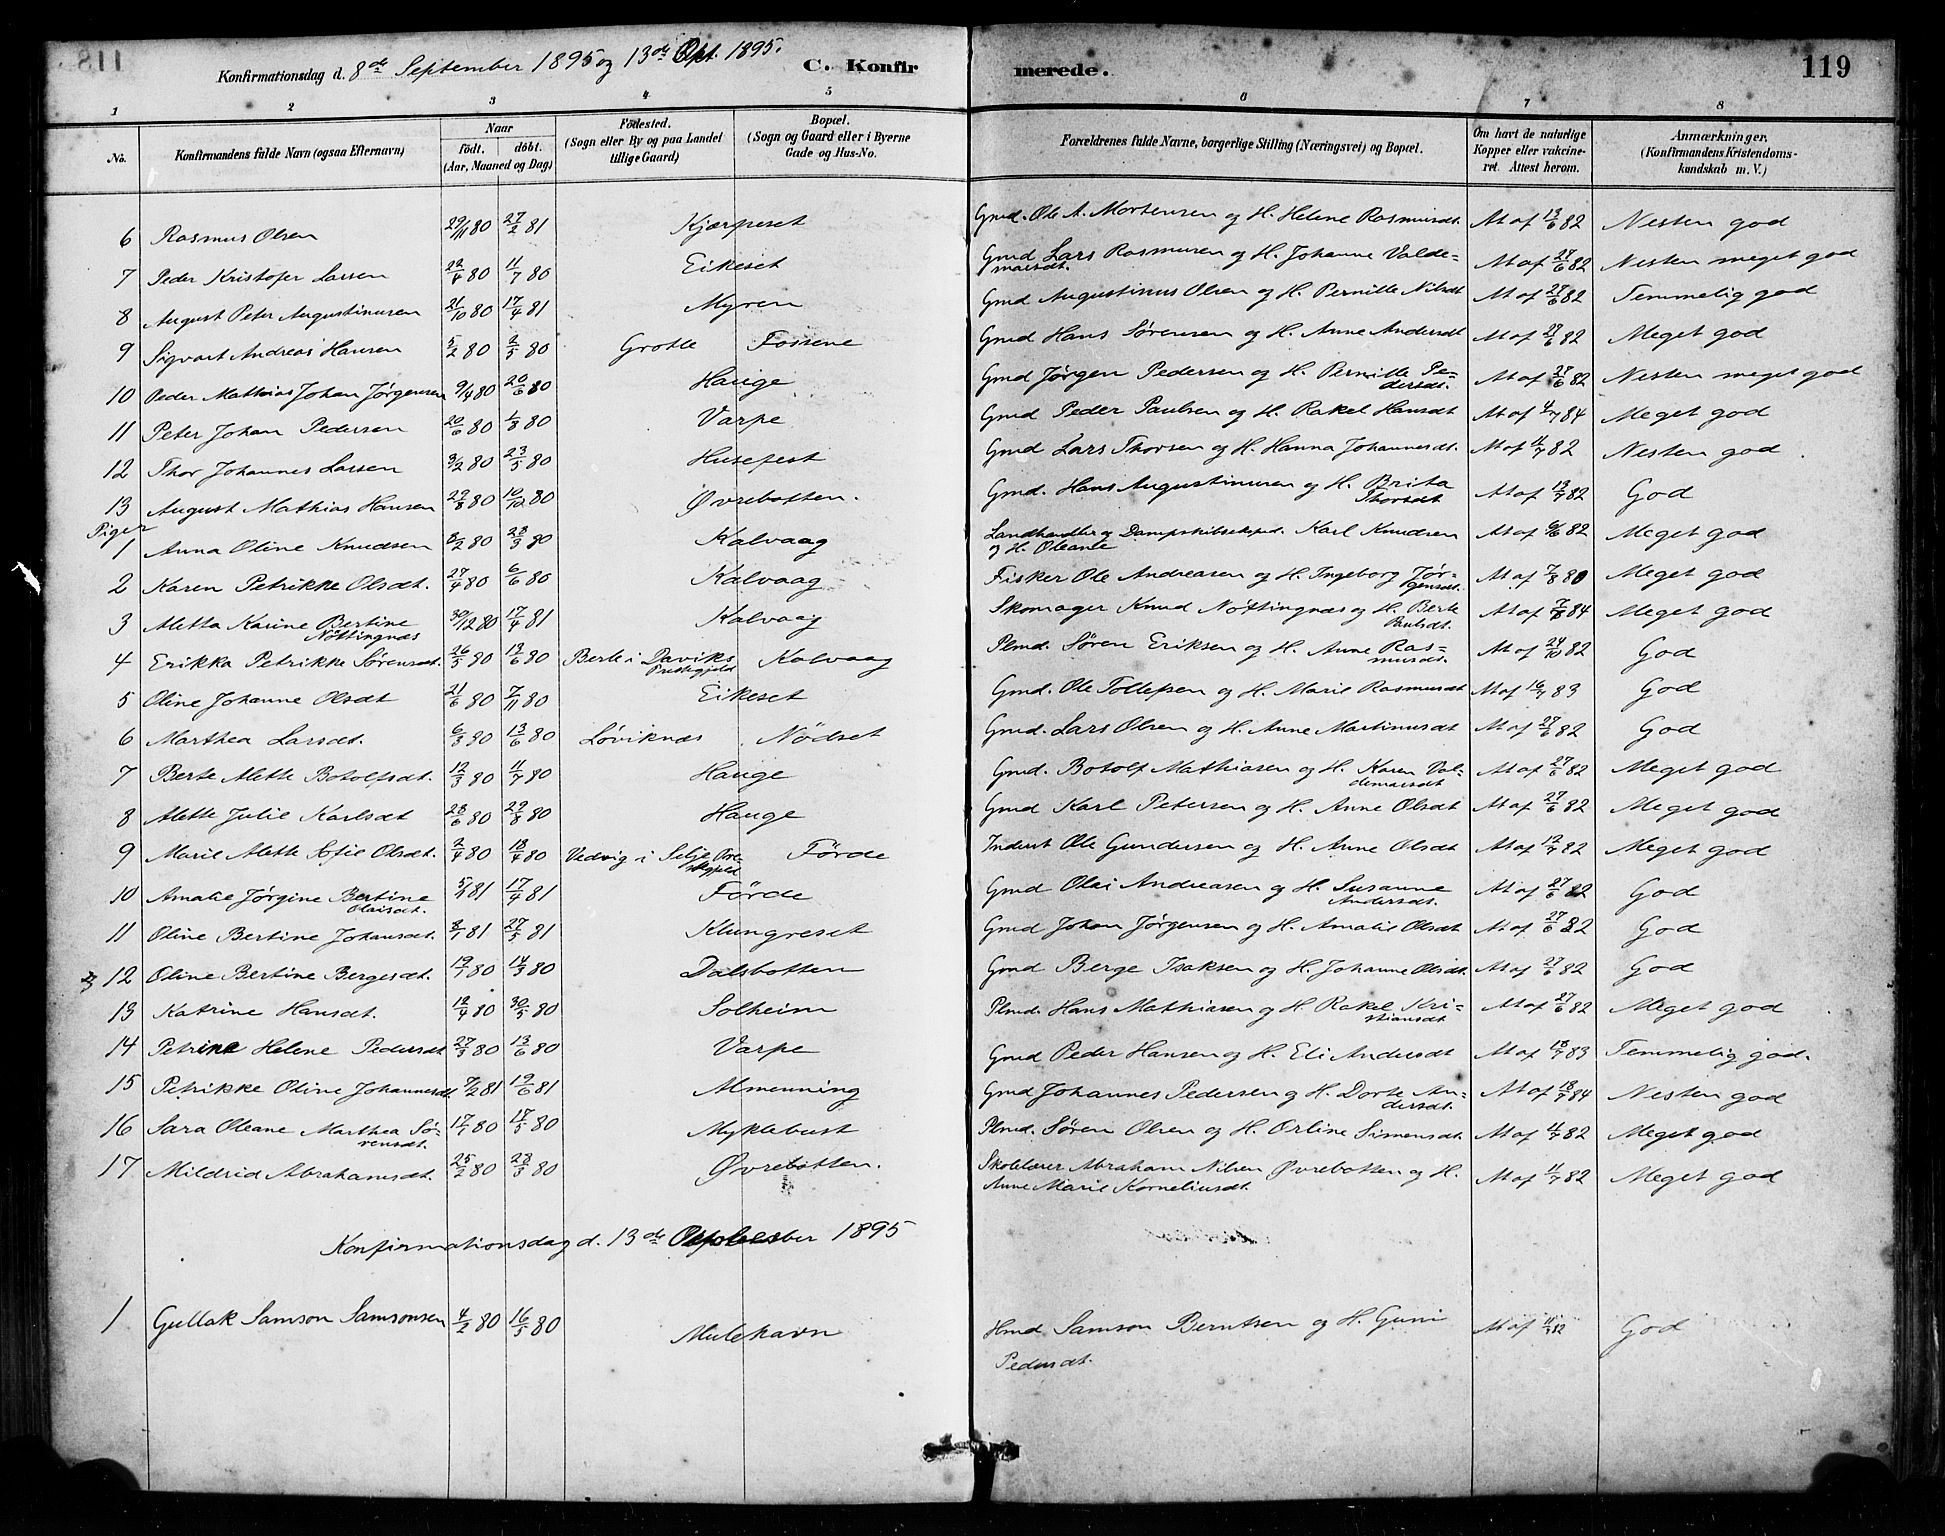 Konfirmationsdag d. 8de September 1895 og 13de Okt. 1895. C. Konfirmerede. 119
1 2 3 4 5 6 7 8
No. Konfirmandens fulde Navn (ogsaa Efternavn) Naar födt. döbt. (Aar, Maaned og Dag) Födested. (Sogn eller By og paa Landet tillige Gaard) Bopæl. (Sogn og Gaard eller i Byerne Gade og Hus-No. Forældrenes fulde Navne, borgerlige Stilling (Næringsvei) og Bopæl. Om havt de naturlige Kopper eller vakcineret. Attest herom. Anmærkninger. (Konfirmandens Kristendomskundskab m. V.)
6 Rasmus Olsen 29/11 80 27/2 81 Kjærpeset Gmd. Ole A. Mortensen og H. Helene Rasmusdt. At af 13/6 82 Nesten god
7 Peder Kristofer Larsen 22/4 80 11/7 80 Eikeset Gmd Lars Rasmusen og H. Johanne Valdemarsdt. At af 27/6 82 Nesten meget god
8 August Peter Augustinusen 21/10 80 17/4 81 Myren Gmd Augustinus Olsen og H. Pernille Nilsdt At af 27/6 82 Temmelig god
9 Sigvart Andreas Hansen 3/2 80 2/5 80 Grotle Fossene Gmd Hans Sørensen og H. Anne Andersdt At af 27/6 82 Meget god
10 Peder Mathias Johan Jørgensen 9/4 80 20/6 80 Hauge Gmd Jørgen Pedersen og H. Pernille Pedersdt. At af 27/6 82 Nesten meget god
11 Peter Johan Pedersen 20/6 80 1/8 80 Varpe Gmd Peder Paulsen og H. Rakel Hansdt At af 4/7 84 Meget god
12 Thor Johannes Larsen 3/2 80 23/5 80 Husefest Gmd Lars Thorsen og H. Hanna Johannesdt. At af 11/7 82 Nesten god
13 August Mathias Hansen 29/8 80 10/10 80 Øvrebotten. Gmd. Hans Augustinusen og H. Brita Thorsdt At af 13/7 82 God
Piger
1 Anna Oline Knudsen 8/2 80 28/3 80 Kalvaag Landhandler og Dampskibseksped. Karl Knudsen og H. Oleanne At af 6/6 82 Meget god
2 Karen Petrikke Olsdt. 27/4 80 6/6 80 Kalvaag Fisker Ole Andreasen og H. Ingeborg Jørgensdt. At af 7/8 80 Meget god
3 Aletta Karine Bertine Nöttingnæs 30/12 80 17/4 81 Kalvaag Skomager Knud Nöttingnæs og H. Berte Paulsdt. At af 7/8 84 Meget god
4 Erikka Petrikke Sørensdt. 26/5 80 13/6 80 Berle i Daviks Prestegjeld Kalvaag Plmd. Søren Eriksen og H. Anne Rasmusdt. At af 24/10 82 God
5 Oline Johanne Olsdt 21/6 80 7/11 80 Eikeset Gmd. Ole Tollefsen og H. Marie Rasmusdt At af 16/7 83 God
6 Marthea Larsdt. 6/3 80 13/6 80 Løviknæs Nödset Gmd. Lars Olsen og H. Anne Martinusdt At af 27/6 82 God
7 Berte Alette Botolfsdt. 12/3 80 11/7 80 Hauge Gmd. Botolf Mathiasen og H. Karen Valdemarsdt At af 27/6 82 Meget god
8 Alette Julie Karlsdt 23/6 80 29/8 80 Hauge Gmd Karl Petersen og H. Anne Olsdt At af 27/6 82 Meget god
9 Marie Alette Sofie Olsdt. 2/4 80 18/4 80 Vedvig i Selje Prestegjeld Förde Inderst Ole Gundersen og H. Anne Olsdt At af 12/7 82 Meget god
10 Amalie Jørgine Bertine Olaisdt. 5/1 81 17/4 81 Förde Gmd Olai Andreasen og H. Susanne Andersdt. At af 27/6 82 God
11 Oline Bertine Johansdt. 8/1 81 27/5 81 Klungreset Gmd Johan Jørgensen og H. Amalie Olsdt At af 27/6 82 God
12 Oline Bertine Bergesdt. 19/1 80 14/3 80 Dalsbotten Gmd Berge Isaksen og H. Johanne Olsdt. At af 27/6 82 God
13 Katrine Hansdt. 12/4 80 30/5 80 Solheim Plmd. Hans Mathiasen og H. Rakel Kristiansdt At af 27/6 82 Meget god
14 Petrine Helene Pedersdt 27/3 80 13/6 80 Varpe Gmd Peder Hansen og H. Eli Andersdt At af 18/7 83 Temmelig god.
15 Petrikke Oline Johannesdt. 7/2 81 19/6 81 Almenning Gmd Johannes Pedersen og H. Dorte Andersdt. At af 18/7 84 Nesten god
16 Sara Oleane Marthea Sørensdt. 17/1 80 17/5 80 Myklebust Plmd. Søren Olsen og H. Orline Simensdt. At af 11/7 82 Meget god
17 Mildrid Abrahamsdt. 25/2 80 28/3 80 Øvrebotten. Skolelærer Abraham Nilsen Øvrebotten og H. Anne Marie Korneliusdt. At af 11/7 82 Meget god
Konfirmationsdag d. 13de Oktober 1895
1 Gullak Samson Samsonsen 4/2 80 16/5 80 Mulehavn Hmd Samson Berntsen og H. Guni Pedersdt. At af 11/7 82 God